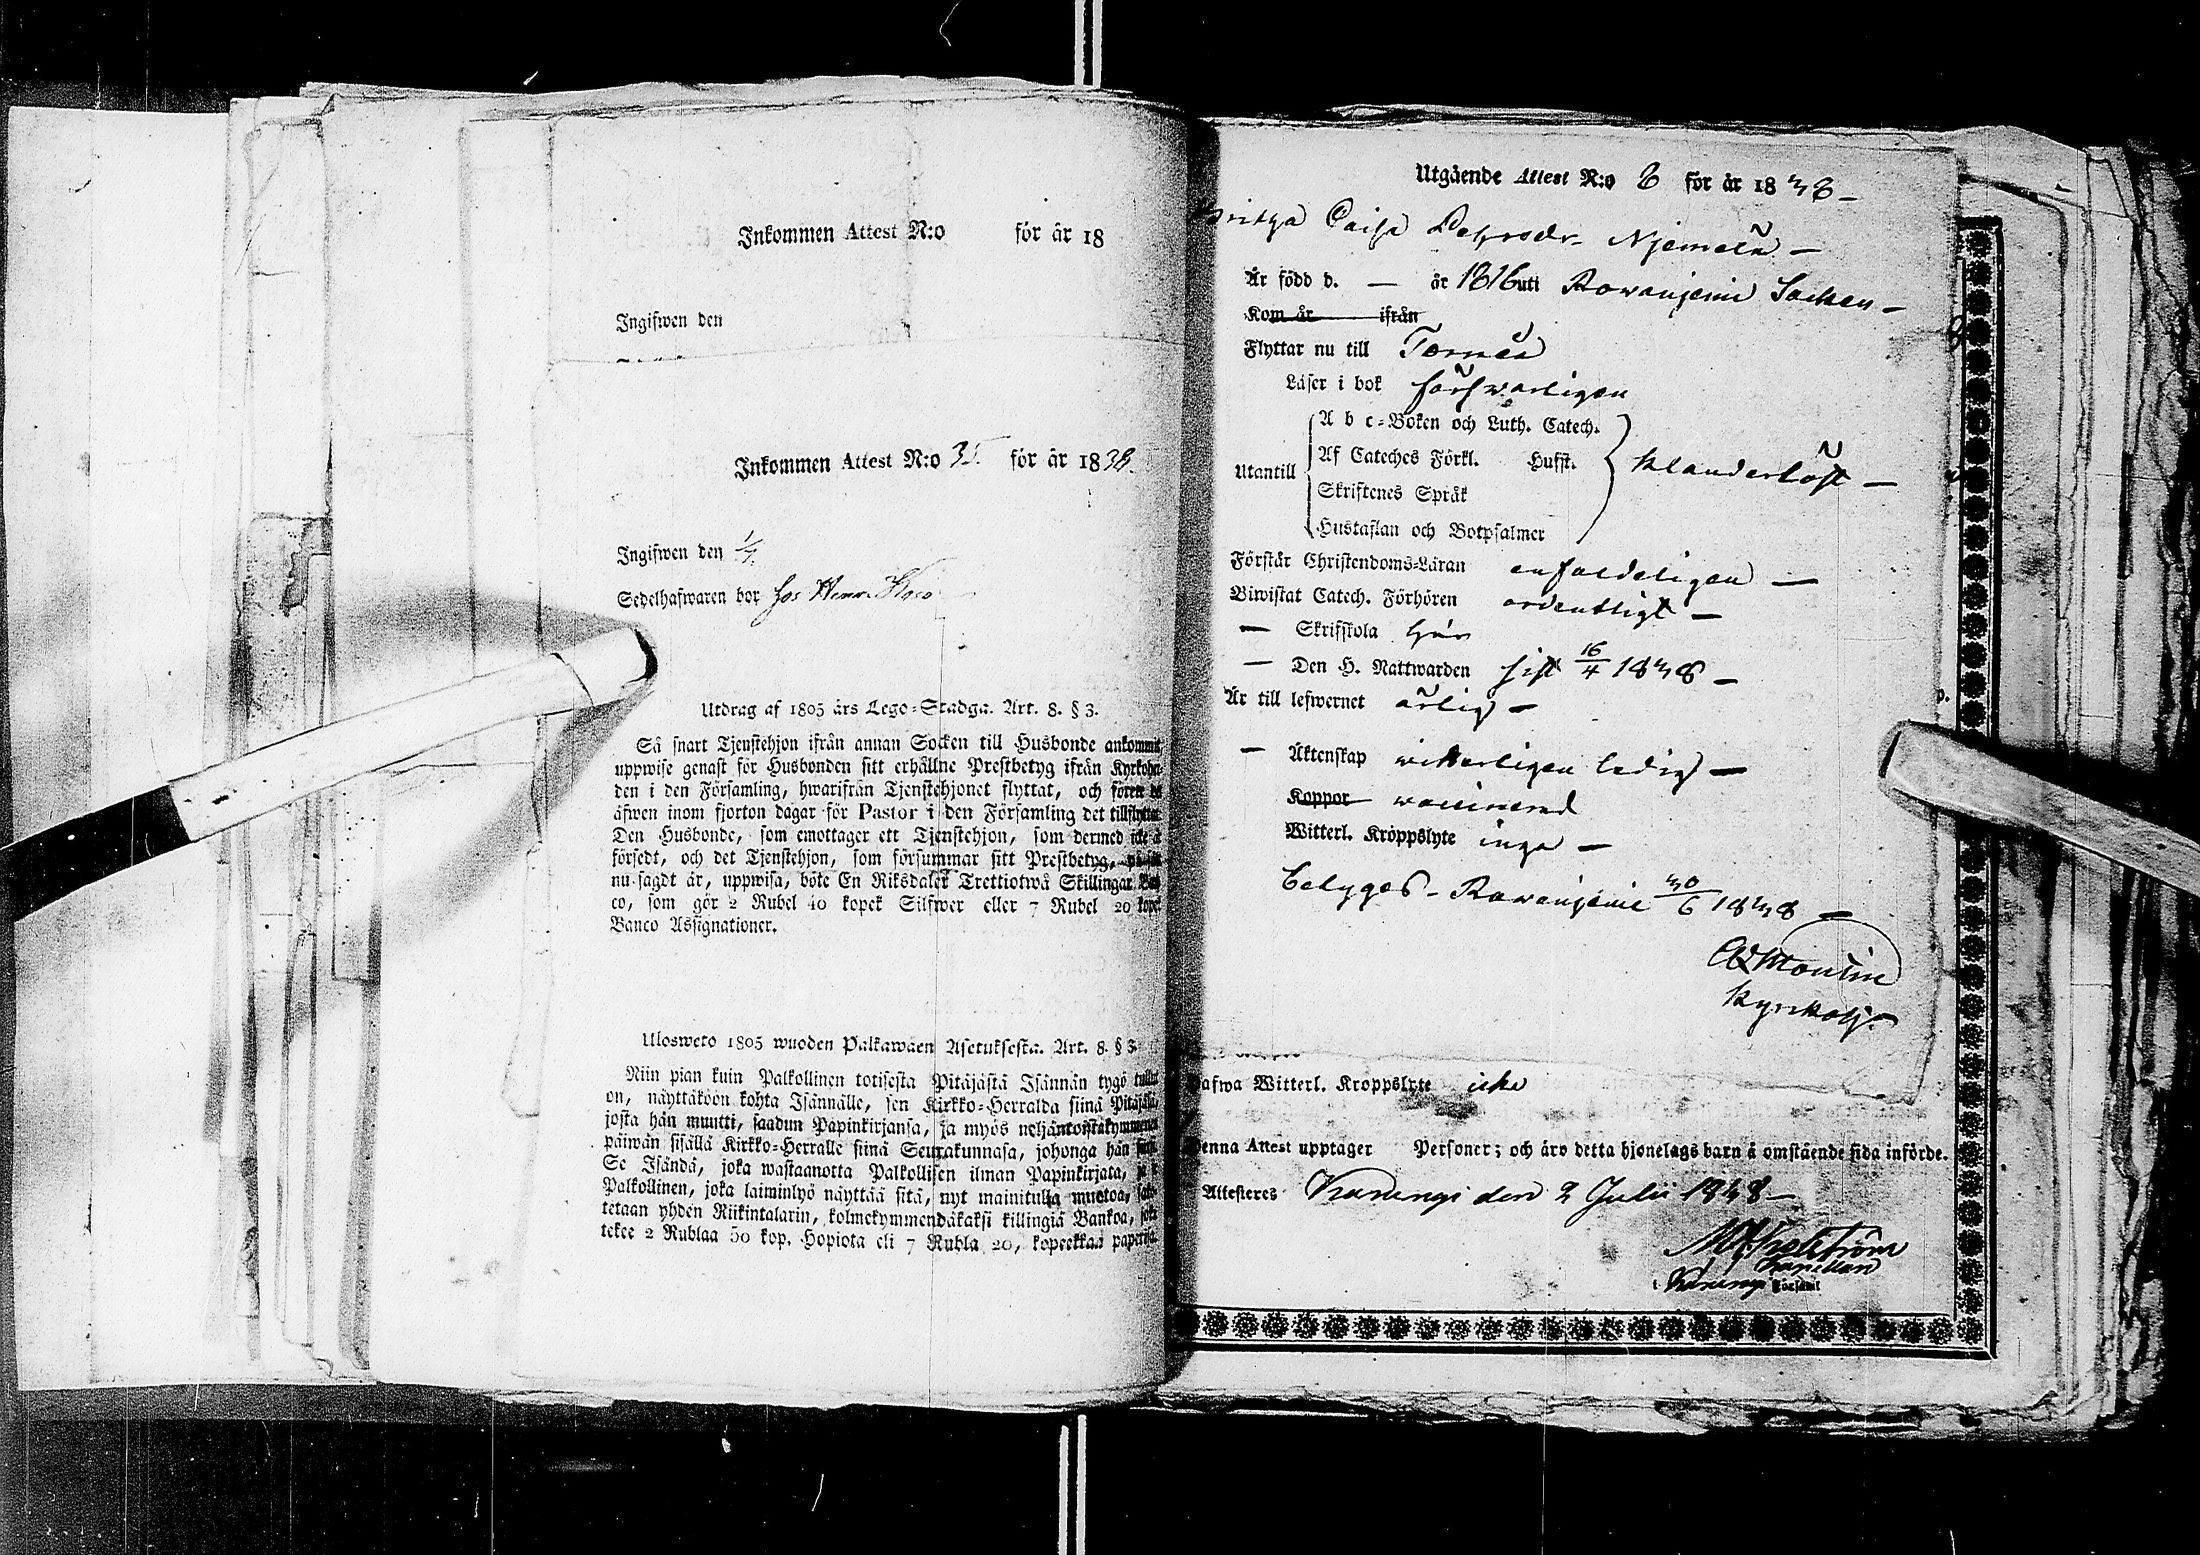 Inkommen Attest N:o för år 18
Ingifwen den
Inkommen Attest N:o 35. för år 1838.
Ingifwen den 1/7.
Sedelhafwaren bor hos Henr.
Utdrag af 1805 års Lego-Stadga. Art. 8. § 3.
Så snart Tjenstehjon ifrån annan Socken till Husbonde ankommit,
uppwise genast för Husbonden sitt erhållne Prestbetyg ifrån Kyrkoher-
den i den Församling, hwarifrån Tjenstehjonet flyttat, och förete det
äfwen inom fjorton dagar för Pastor i den Församling det tillflyttat
Den Husbonde, som emottager ett Tjenstehjon, som dermed icke ä
försedt, och det Tjenstehjon, som försummar sitt Prestbetyg, på sätt
nu sagdt är, uppwisa, böte En Riksdaler Trettiotwå Skillingar Ban
co, som gör 2 Rubel 40 kopek Silfwer eller 7 Rubel 20 kopek
Banco Assignationer.
Ulosweto 1805 wuoden Palkawäen Asetuksesta. Art. 8. § 3.
Niin pian kuin Palkollinen totisesta Pitäjästä Isännän tygö tullut
on, näyttäköön kohta Isännälle, sen Kirkko-Herralda siinä Pitäjäsä,
josta hän muutti, saadun Papinkirjansa, ja myös neljäntoistakymmenen
päiwän sisällä Kirkko-Herralle siinä Seurakunnasa, johonga hän
Se Isändä, joka wastaanotta Palkollisen ilman Papinkirjata,
Palkollinen, joka laiminlyö näyttää sitä, nyt mainitulla muotoa, sak-
tetaan yhden Riikintalarin, kolmekymmendäkaksi killingiä Bankoa, joka
tekee 2 Rublaa 50 kop. Hopiota eli 7 Rubla 20, kopeekkaa paperisa.
Utgående Attest N:o 8 för år 1838 -
Britha Caisa Pehrsdr. Njemelä -
Är född d. — år 1816 uti Rowanjemi Socken -
Kom år ifrån
Flyttar nu till Torneå
Läser i bok försvarligen
A b c-Boken och Luth. Catech.
Utantill Af Cateches Förkl. Hufst. klanderlöst —
Skriftenes Språk
Hustaflan och Botpsalmer
Förstår Christendoms-Läran enfaldeligen —
Biwistat Catech. Förhören ordentligt —
— Skrifskola här
— Den H. Nattwarden sist 16/4 1838 —
Är till lefwernet ärlig —
— Äktenskap witterligen ledig —
Koppor vaccinerad
Witterl. Kröppslyte inga —
Betygas - Rowanjemi 30/6 1838 —
Kyrkohj.
hafwa Witterl. Kroppslyte icke
Denna Attest upptager Personer; och äro detta hjonelags barn å omstående sida införde.
Attesteres Karungi den 2 Julii 1838 —
Kapellan
i Karungi Församl